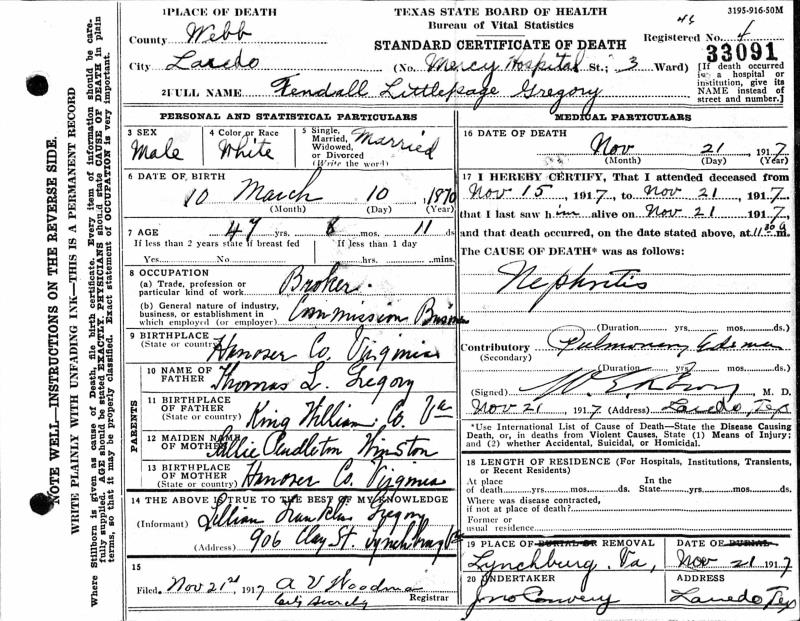 3195-916-50M
1PLACE OF DEATH
TEXAS STATE BOARD OF HEALTH
Bureau of Vital Statistics
STANDARD CERTIFICATE OF DEATH
Registered No. 4
33091
County Webb
City Laredo
(No. Mercy Hospital St.; 3 Ward)
[If death occurred in a hospital or institution, give its NAME instead of street and number.]
2FULL NAME Kendall Littlepage Gregory
PERSONAL AND STATISTICAL PARTICULARS
3 SEX
Male
4 Color or Race
White
5 Single, Married, Widowed, or Divorced
(Write the word)
Married
6 DATE OF BIRTH
10 March 10 1870
(Month) (Day) (Year)
7 AGE 47 yrs. 8 mos. 11 ds
If less than 2 years state if breast fed
Yes No
If less than 1 day
hrs. mins.
8 OCCUPATION
(a) Trade, profession or particular kind of work Broker
(b) General nature of industry, business, or establishment in which employed (or employer) Commission Busi
9 BIRTHPLACE
(State or country) Hanover Co. Virginia
PARENTS
10 NAME OF FATHER Thomas L. Gregory
11 BIRTHPLACE OF FATHER
(State or country) King William Co. Va
12 MAIDEN NAME OF MOTHER Pendleton Winston
13 BIRTHPLACE OF MOTHER
(State or country) Hanover Co. Virginia
14 THE ABOVE IS TRUE TO THE BEST OF MY KNOWLEDGE
(Informant) Lillian Franklin Gregory
(Address) 906 Clay St. Lynchburg Va
15
Filed Nov 21st, 1917 A V Woodman
City Secretary Registrar
MEDICAL PARTICULARS
16 DATE OF DEATH
Nov 21 1917
(Month) (Day) (Year)
17 I HEREBY CERTIFY, That I attended deceased from
Nov 15, 1917, to Nov 21, 1917,
that I last saw him alive on Nov 21, 1917,
and that death occurred, on the date stated above, at 11:30 a m.
The CAUSE OF DEATH* was as follows:
Nephritis
(Duration yrs. mos. ds.)
Contributory Pulmonary Edema
(Secondary)
(Duration yrs. mos. ds.)
(Signed) M. D.
Nov 21 1917 (Address) Laredo, Tex
*Use International List of Cause of Death—State the Disease Causing Death, or, in deaths from Violent Causes, State (1) Means of Injury; and (2) whether Accidental, Suicidal, or Homicidal.
18 LENGTH OF RESIDENCE (For Hospitals, Institutions, Transients, or Recent Residents)
At place of death yrs. mos. ds. In the State yrs. mos. ds.
Where was disease contracted, if not at place of death?
Former or usual residence
19 PLACE OF BURIAL OR REMOVAL
Lynchburg, Va,
DATE OF BURIAL
Nov 21 1917
20 UNDERTAKER
Jno Convery
ADDRESS
Laredo Tex
NOTE WELL—INSTRUCTIONS ON THE REVERSE SIDE.
WRITE PLAINLY WITH UNFADING INK—THIS IS A PERMANENT RECORD
Where Stillborn is given as cause of Death, file birth certificate. Every item of information should be carefully supplied. AGE should be stated EXACTLY. PHYSICIANS should state CAUSE OF DEATH in plain terms, so that it may be properly classified. Exact statement of OCCUPATION is very important.